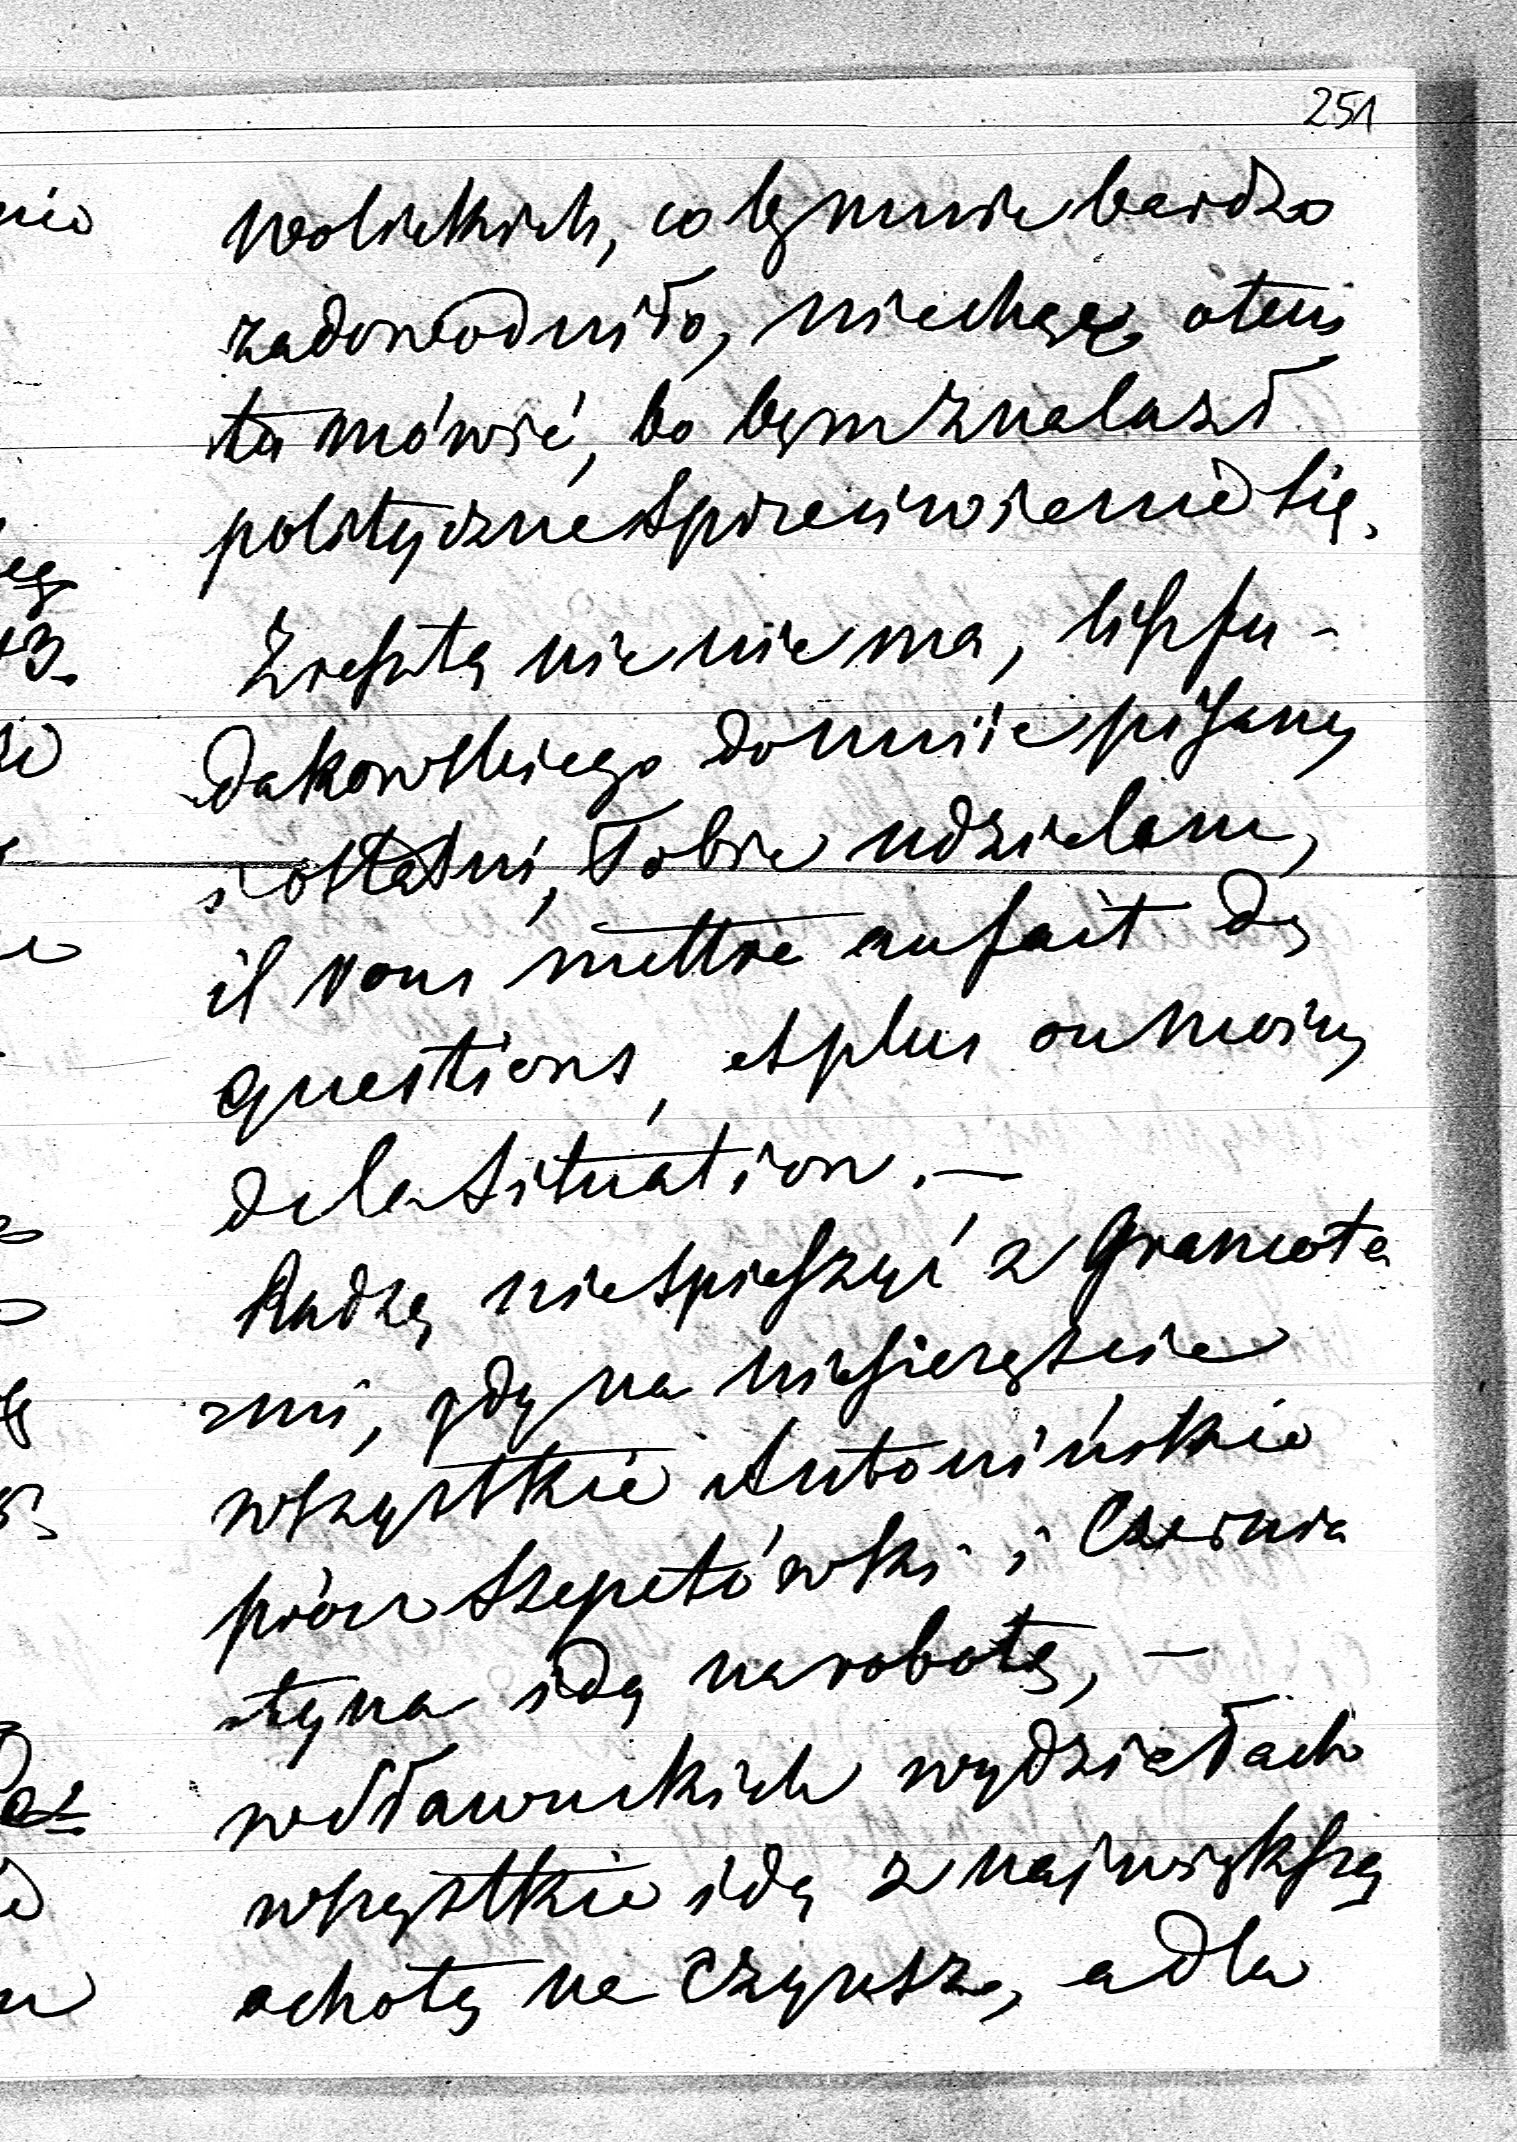 251
wolickich, coby mnie bardzo
zadowodniło, niechcę o tem
tu mówić, bo bym znalazł
polityczne sprzeciwienie się.
Zresztą nic niema, list Ru-
dakowskiego do mnie pisany
i ostatni, Tobie udzielam,
il vous mettra au fait des
questions, et plus ou moins
de la situation. —
Radzę niespieszyć z Gramota
mi, gdy na nieszczęście
wszystkie Antonińskie
prócz Szepetówki i Czernia
tyna idą na robotę, —
w sławuckich wydziałach
wszystkie idą z największą
ochotą na czynsze, a dla